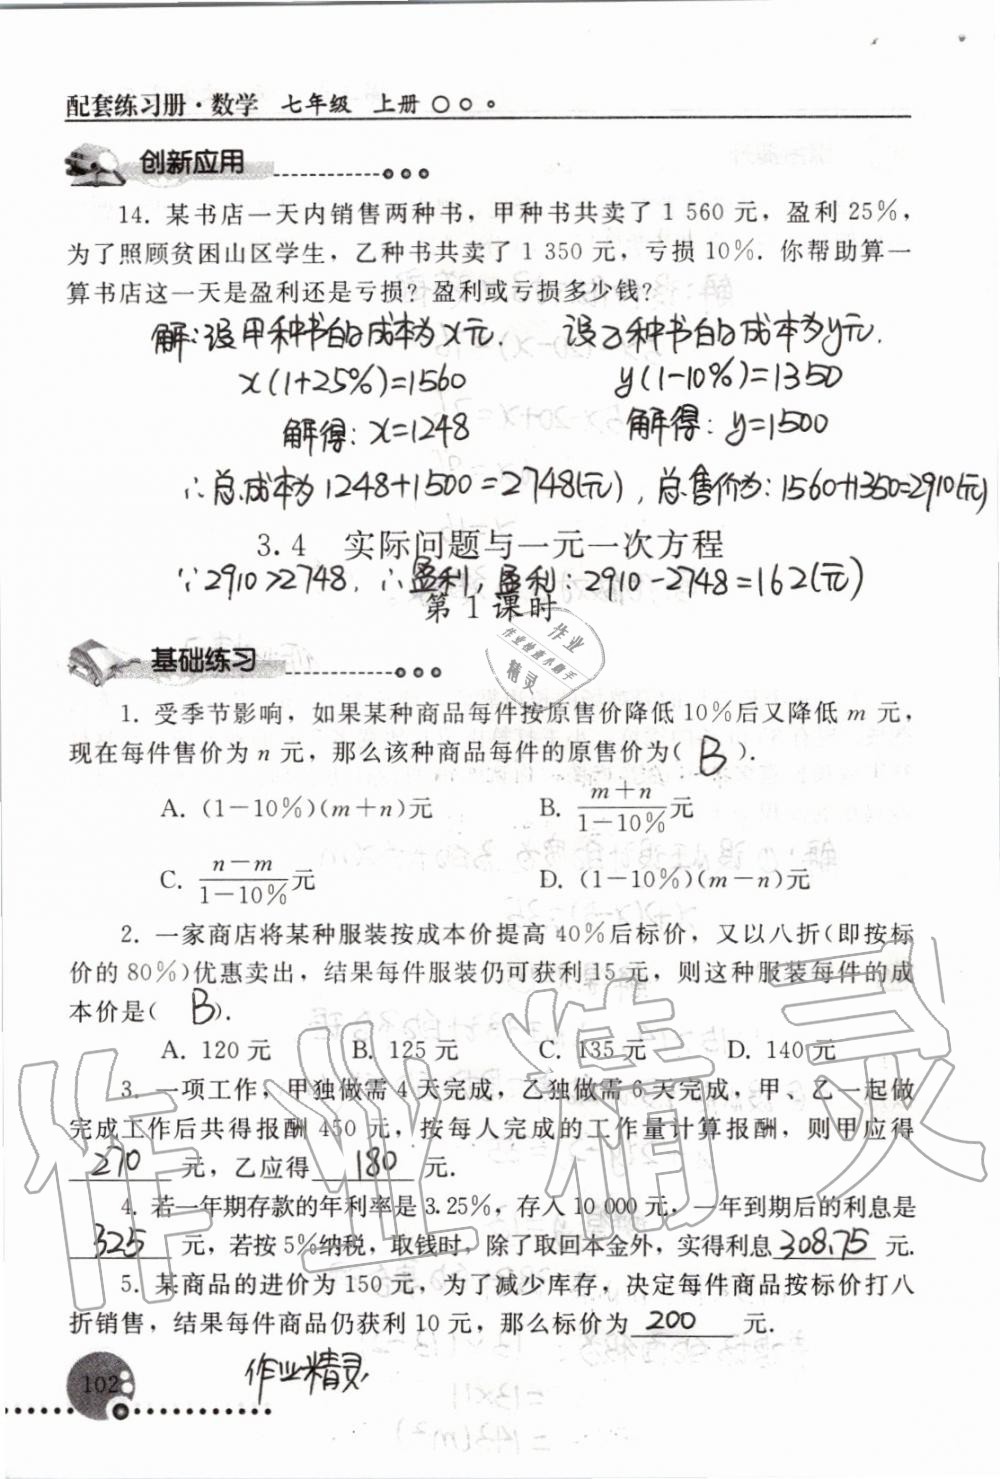 配套练习册·数学 七年级 上册
创新应用
14. 某书店一天内销售两种书，甲种书共卖了 1 560 元，盈利 25%，
为了照顾贫困山区学生，乙种书共卖了 1 350 元，亏损 10%. 你帮助算一
算书店这一天是盈利还是亏损？盈利或亏损多少钱？
解：设甲种书的成本为x元. 设乙种书的成本为y元.
x(1+25%)=1560 y(1-10%)=1350
解得：x=1248 解得：y=1500
∴总成本为1248+1500=2748(元)，总售价为：1560+1350=2910(元)
3.4 实际问题与一元一次方程
∵2910>2748，∴盈利，盈利：2910-2748=162(元)
第 1 课时
基础练习
1. 受季节影响，如果某种商品每件按原售价降低 10%后又降低 m 元，
现在每件售价为 n 元，那么该种商品每件的原售价为( B ).
A. (1-10%)(m+n)元 B. \frac{m+n}{1-10%}元
C. \frac{n-m}{1-10%}元 D. (1-10%)(m-n)元
2. 一家商店将某种服装按成本价提高 40%后标价，又以八折(即按标
价的 80%)优惠卖出，结果每件服装仍可获利 15 元，则这种服装每件的成
本价是( B ).
A. 120 元 B. 125 元 C. 135 元 D. 140 元
3. 一项工作，甲独做需 4 天完成，乙独做需 6 天完成，甲、乙一起做
完成工作后共得报酬 450 元，按每人完成的工作量计算报酬，则甲应得
270 元，乙应得 180 元.
4. 若一年期存款的年利率是 3.25%，存入 10 000 元，一年到期后的利息是
325 元，若按 5%纳税，取钱时，除了取回本金外，实得利息 308.75 元.
5. 某商品的进价为 150 元，为了减少库存，决定每件商品按标价打八
折销售，结果每件商品仍获利 10 元，那么标价为 200 元.
作业精灵
102
作业精灵
作业
作业检查小助手
精灵